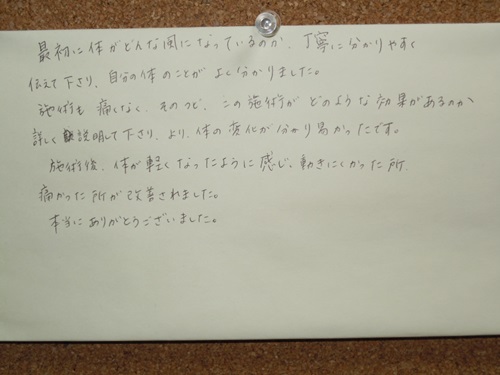 最初に体がどんな風になっているのか、丁寧に分かりやすく
伝えて下さり、自分の体のことがよく分かりました。
施術も痛くなく、そのつど、この施術がどのような効果があるのか
詳しく説明して下さり、より、体の変化が分かり易かったです。
施術後、体が軽くなったように感じ、動きにくかった所、
痛かった所が改善されました。
本当にありがとうございました。